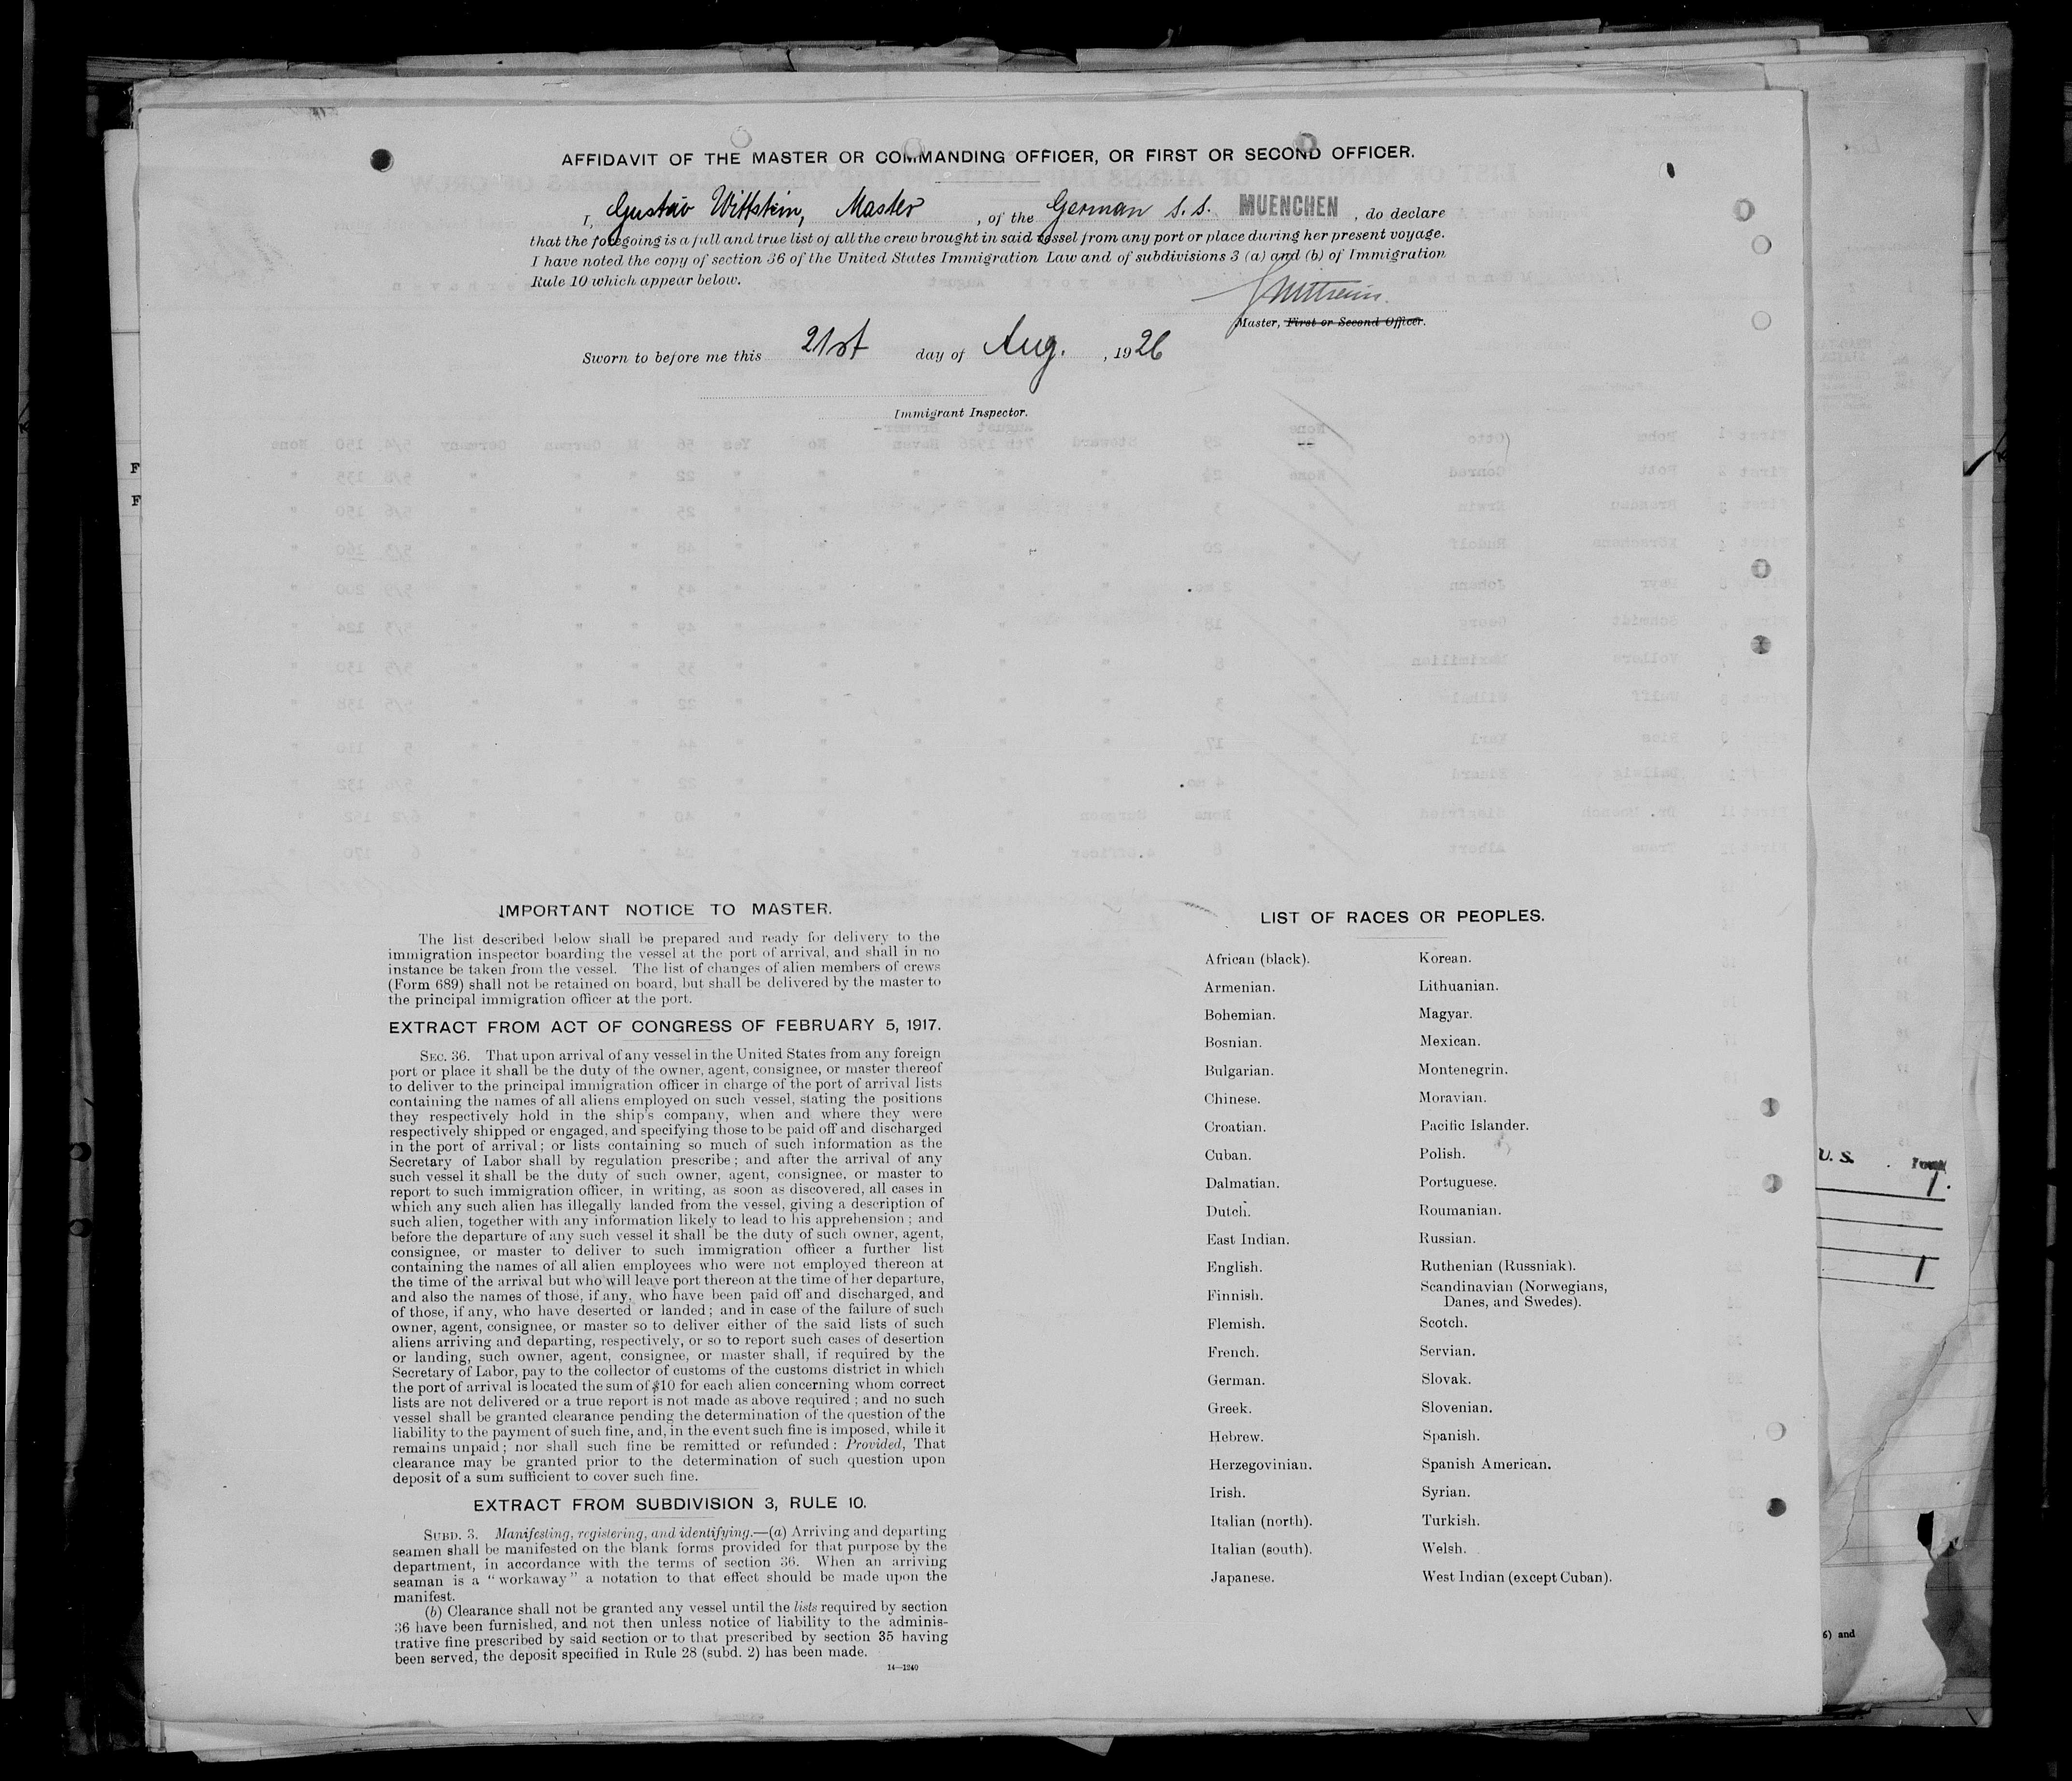 AFFIDAVIT OF THE MASTER OR COMMANDING OFFICER, OR FIRST OR SECOND OFFICER.
I, Gustav Wittstein, Master , of the German S.S. MUENCHEN , do declare
that the foregoing is a full and true list of all the crew brought in said vessel from any port or place during her present voyage.
I have noted the copy of section 36 of the United States Immigration Law and of subdivisions 3 (a) and (b) of Immigration
Rule 10 which appear below.
Master, First or Second Officer.
Sworn to before me this 21st day of Aug. , 1926
Immigrant Inspector.
F
F
IMPORTANT NOTICE TO MASTER.
The list described below shall be prepared and ready for delivery to the
immigration inspector boarding the vessel at the port of arrival, and shall in no
instance be taken from the vessel. The list of changes of alien members of crews
(Form 689) shall not be retained on board, but shall be delivered by the master to
the principal immigration officer at the port.
EXTRACT FROM ACT OF CONGRESS OF FEBRUARY 5, 1917.
SEC. 36. That upon arrival of any vessel in the United States from any foreign
port or place it shall be the duty of the owner, agent, consignee, or master thereof
to deliver to the principal immigration officer in charge of the port of arrival lists
containing the names of all aliens employed on such vessel, stating the positions
they respectively hold in the ship's company, when and where they were
respectively shipped or engaged, and specifying those to be paid off and discharged
in the port of arrival; or lists containing so much of such information as the
Secretary of Labor shall by regulation prescribe; and after the arrival of any
such vessel it shall be the duty of such owner, agent, consignee, or master to
report to such immigration officer, in writing, as soon as discovered, all cases in
which any such alien has illegally landed from the vessel, giving a description of
such alien, together with any information likely to lead to his apprehension; and
before the departure of any such vessel it shall be the duty of such owner, agent,
consignee, or master to deliver to such immigration officer a further list
containing the names of all alien employees who were not employed thereon at
the time of the arrival but who will leave port thereon at the time of her departure,
and also the names of those, if any, who have been paid off and discharged, and
of those, if any, who have deserted or landed; and in case of the failure of such
owner, agent, consignee, or master so to deliver either of the said lists of such
aliens arriving and departing, respectively, or so to report such cases of desertion
or landing, such owner, agent, consignee, or master shall, if required by the
Secretary of Labor, pay to the collector of customs of the customs district in which
the port of arrival is located the sum of $10 for each alien concerning whom correct
lists are not delivered or a true report is not made as above required; and no such
vessel shall be granted clearance pending the determination of the question of the
liability to the payment of such fine, and, in the event such fine is imposed, while it
remains unpaid; nor shall such fine be remitted or refunded: Provided, That
clearance may be granted prior to the determination of such question upon
deposit of a sum sufficient to cover such fine.
EXTRACT FROM SUBDIVISION 3, RULE 10.
SUBD. 3. Manifesting, registering, and identifying.—(a) Arriving and departing
seamen shall be manifested on the blank forms provided for that purpose by the
department, in accordance with the terms of section 36. When an arriving
seaman is a "workaway" a notation to that effect should be made upon the
manifest.
(b) Clearance shall not be granted any vessel until the lists required by section
36 have been furnished, and not then unless notice of liability to the adminis-
trative fine prescribed by said section or to that prescribed by section 35 having
been served, the deposit specified in Rule 28 (subd. 2) has been made.
14—1240
LIST OF RACES OR PEOPLES.
African (black).
Armenian.
Bohemian.
Bosnian.
Bulgarian.
Chinese.
Croatian.
Cuban.
Dalmatian.
Dutch.
East Indian.
English.
Finnish.
Flemish.
French.
German.
Greek.
Hebrew.
Herzegovinian.
Irish.
Italian (north).
Italian (south).
Japanese.
Korean.
Lithuanian.
Magyar.
Mexican.
Montenegrin.
Moravian.
Pacific Islander.
Polish.
Portuguese.
Roumanian.
Russian.
Ruthenian (Russniak).
Scandinavian (Norwegians,
Danes, and Swedes).
Scotch.
Servian.
Slovak.
Slovenian.
Spanish.
Spanish American.
Syrian.
Turkish.
Welsh.
West Indian (except Cuban).
U. S.
1.
1
6) and